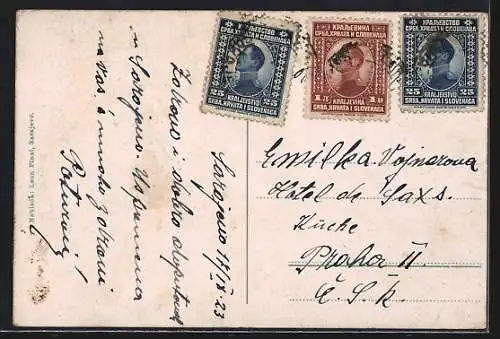 КРАЉЕВСТВО
СРБА, ХРВАТА И СЛОВЕНАЦА
25 25
KRALJEVSTVO
SRBA, HRVATA I SLOVENACA
КРАЉЕВИНА
СРБА, ХРВАТА И СЛОВЕНАЦА
1 Д 1 D
KRALJEVINA
SRBA, HRVATA I SLOVENACA
КРАЉЕВСТВО
СРБА, ХРВАТА И СЛОВЕНАЦА
25 25
KRALJEVSTVO
SRBA, HRVATA I SLOVENACA
Sarajevo 17/IX 23
Zdravo i dobro
u Sarajevo. Uspomena
na Vas i mnogo
Emilka Vojnarova
Hotel de Saxs.
Küche
Praha II.
Č.S.R.
Leon Finzi, Sarajevo.